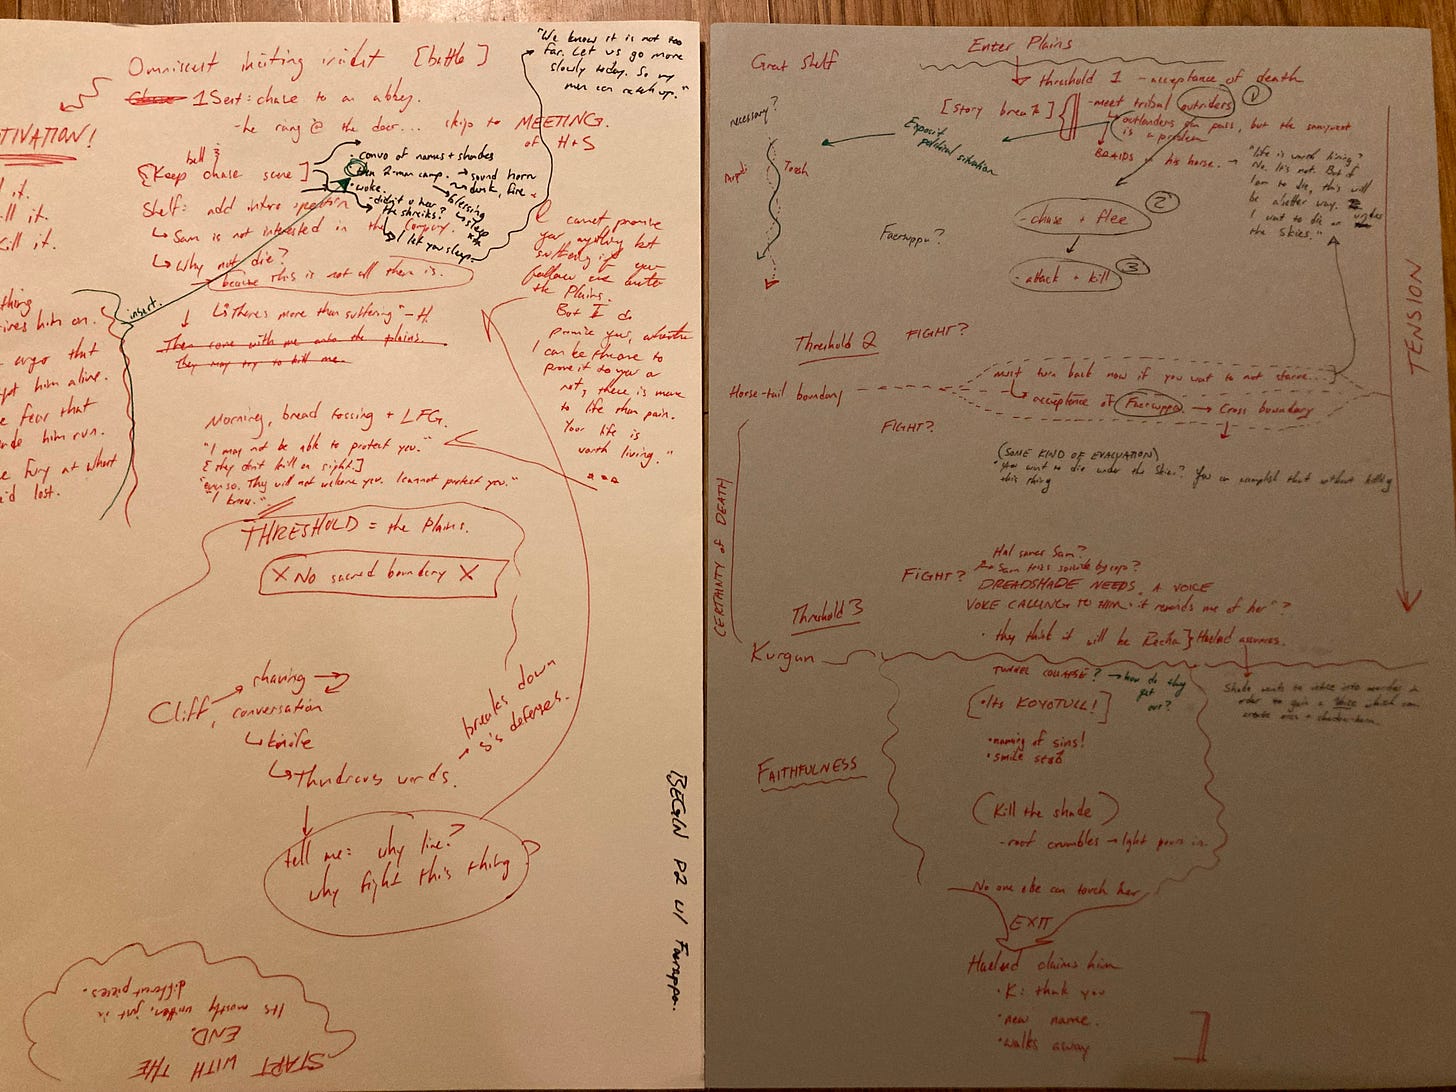 Omniscent inciting incident [battle]
Chase 1 Sent: chase to an abbey.
-he rang @ the door... skip to MEETING.
of H+S
TIVATION!
"We know it is not too
far. Let us go more
slowly today. So my
men can catch up."
bell &
{Keep chase scene]
Shelf: add intro spection
↳ Sam is not interested in the Company.
↳ Why not die?
→ because this is not all there is.
↳ "There's more than suffering" -H.
Then come with me onto the plains.
They may try to kill me.
• convo of names + shades
2-man camp. → sound horn
dusk, fire.
• woke.
→ blessing
↳ sleep
-didn't u hear?
the shreiks?
↳ I let you sleep.
insert.
it.
ill it.
Kill it.
thing
ives him on.
ergo that
pt him alive.
e fear that
de him run.
e Fury at what
'd lost.
I cannot promise
you anything but
suffering if you
follow me onto
the Plains.
But I do
promise you, whether
I can be the one to
prove it to you or
not, there is more
to life than pain.
Your life is
worth living."
Morning, bread tossing + LFG.
"I may not be able to protect you."
[they don't kill on sight.]
"even so. They will not welcome you. I cannot protect you."
"I know."
THRESHOLD = the Plains.
X No sacred boundary X
Cliff → shaving →
conversation
↳ knife
↳ Thundrous words.
→ breaks down
S's defenses.
tell me: why live?
why fight this thing
BEGIN P2 w/ Faerappa.
START WITH THE
END.
Its mostly written, just in
different pieces.
Great Shelf
Enter Plains
threshold 1 - acceptance of death
[story break] - meet tribal outriders ①
↳ outlanders can pass, but the
is a problem
BRAIDS his horse.
necessary?
Exposit
political situation
Tooth
"life is worth living?
No. It's not. But if
I am to die, this will
be a better way.
I want to die under
the Skies."
②
-chase + flee
Faerappa?
-attack + kill ③
TENSION
Threshold 2 FIGHT?
must turn back now if you want to not starve...
Horse-tail boundary
↳ acceptance of Faerappa → Cross boundary
FIGHT?
(SOME KIND OF EVALUATION)
"You want to die under the Skies? You can accomplish that without killing
this thing
CERTAINTY of DEATH
Hal saves Sam?
Sam tries suicide by cops?
FIGHT? DREADSHADE NEEDS A VOICE
VOICE CALLING TO HIM. "it reminds me of her"?
Threshold 3
• they think it will be Recha] Haelud assumes.
Kurgun
TUNNEL COLLAPSE? → how do they
get
out?
Shade wants to into murder in
order to gain a Voice which can
create
[• Its KOYOTULL!]
• naming of sins!
• smile stab
FAITHFULNESS
(Kill the shade)
- roof crumbles → light pours in
No one else can touch her
EXIT
Haelud claims him
• K: thank you
• new name.
• walks away